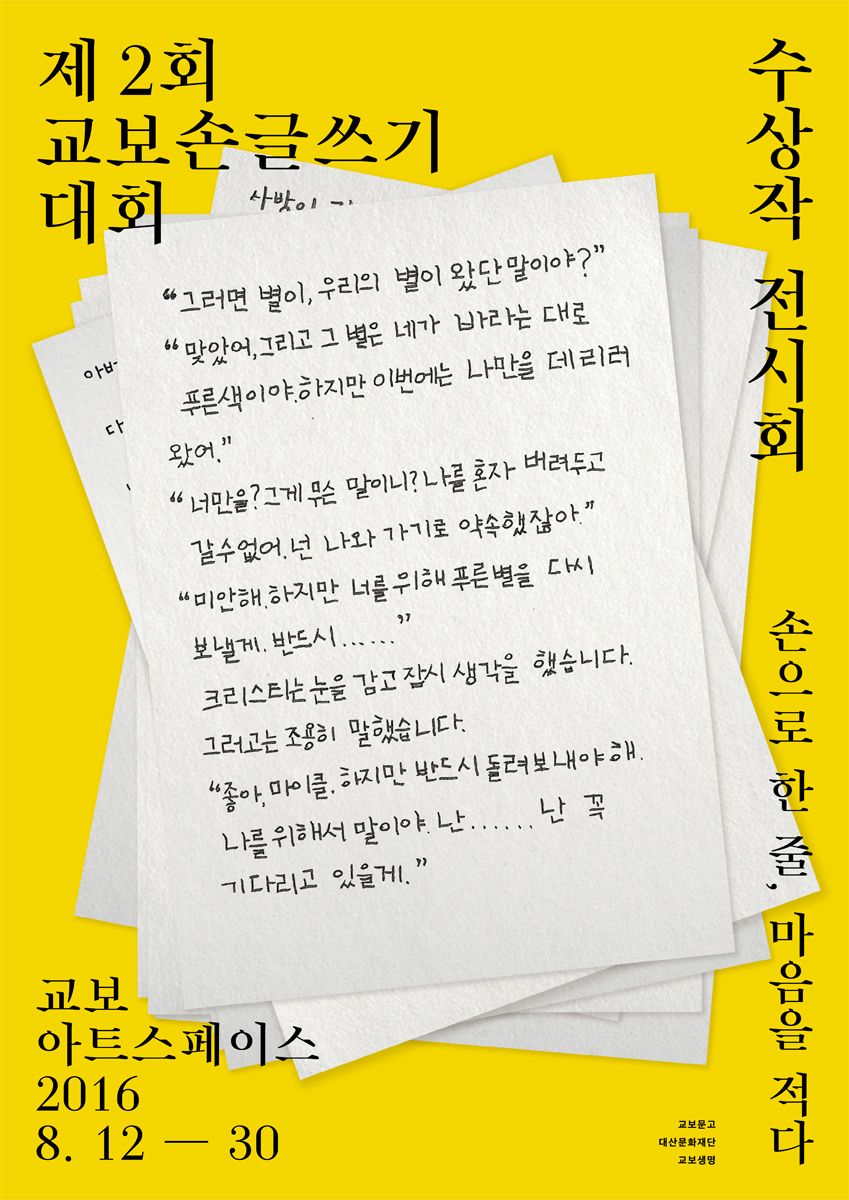 제 2회
교보손글쓰기
대회
수상작 전시회
아버
다
“그러면 별이, 우리의 별이 왔단 말이야?”
“맞았어, 그리고 그 별은 네가 바라는 대로
푸른색이야. 하지만 이번에는 나만을 데리러
왔어.”
“너만을? 그게 무슨 말이니? 나를 혼자 버려두고
갈 수 없어. 넌 나와 가기로 약속했잖아.”
“미안해. 하지만 너를 위해 푸른 별을 다시
보낼게. 반드시......”
크리스티는 눈을 감고 잠시 생각을 했습니다.
그러고는 조용히 말했습니다.
“좋아, 마이클. 하지만 반드시 돌려보내야 해.
나를 위해서 말이야. 난...... 난 꼭
기다리고 있을게.”
손으로 한 줄, 마음을 적다
교보
아트스페이스
2016
8. 12 — 30
교보문고
대산문화재단
교보생명